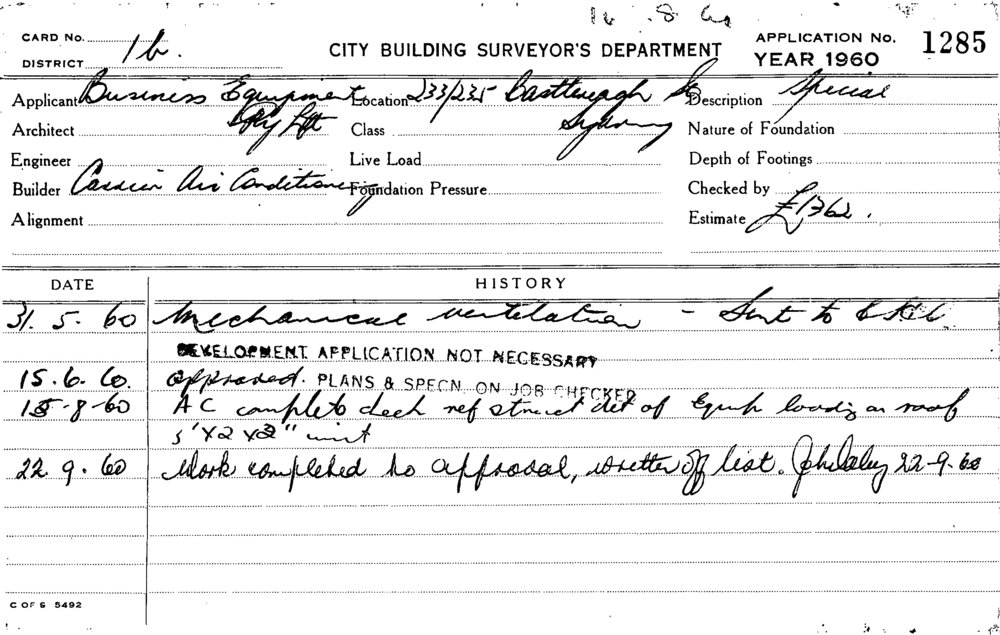 16.8.60
CARD No.
DISTRICT 1b.
CITY BUILDING SURVEYOR'S DEPARTMENT
APPLICATION No. 1285
YEAR 1960
Applicant Business Equipment Pty Ltd
Location 233/235 Castlereagh St Sydney
Description Special
Architect
Class
Nature of Foundation
Engineer
Live Load
Depth of Footings
Builder Air Conditioning
Foundation Pressure
Checked by
Alignment
Estimate £1362.
DATE HISTORY
31. 5. 60 Mechanical ventilation - Sent to
DEVELOPMENT APPLICATION NOT NECESSARY
15. 6. 60. approved. PLANS & SPECN. ON JOB CHECKED
15-8-60 A C complete check ref struct det of Equip loading on roof
5' x 2 x 2" unit
22 9. 60 Work completed to approval, written off list. 22-9-60
C OF S 5492